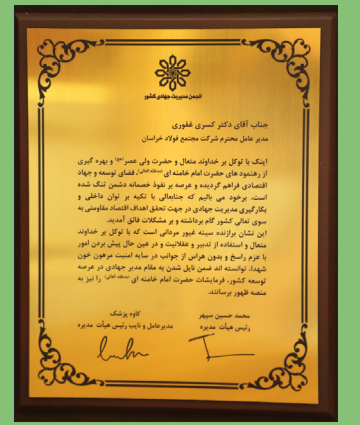 انجمن مدیریت جهادی کشور
جناب آقای دکتر کسری غفوری
مدیر عامل محترم شرکت مجتمع فولاد خراسان
اینک با توکل بر خداوند متعال و حضرت ولی عصر(عج) و بهره گیری
از رهنمودهای حضرت امام خامنه ای (مدظله العالی)، فضای توسعه و جهاد
اقتصادی فراهم گردیده و عرصه بر نفوذ خصمانه دشمن تنگ شده
است، برخود می بالیم که جنابعالی با تکیه بر توان داخلی و
بکارگیری مدیریت جهادی در جهت تحقق اهداف اقتصاد مقاومتی به
سوی تعالی کشور گام برداشته و بر مشکلات فائق آمدید.
این نشان برازنده سینه غیور مردانی است که با توکل بر خداوند
متعال و استفاده از تدبیر و عقلانیت و در عین حال پیش بردن امور
با عزم راسخ و بدون هراس از جوانب در سایه امنیت مرهون خون
شهدا، توانسته اند ضمن نایل شدن به مقام مدیر جهادی در عرصه
توسعه کشور، فرمایشات حضرت امام خامنه ای (مدظله العالی) را نیز به
منصه ظهور برسانند.
محمد حسین سپهر
رئیس هیأت مدیره
کاوه پزشک
مدیرعامل و نایب رئیس هیأت مدیره